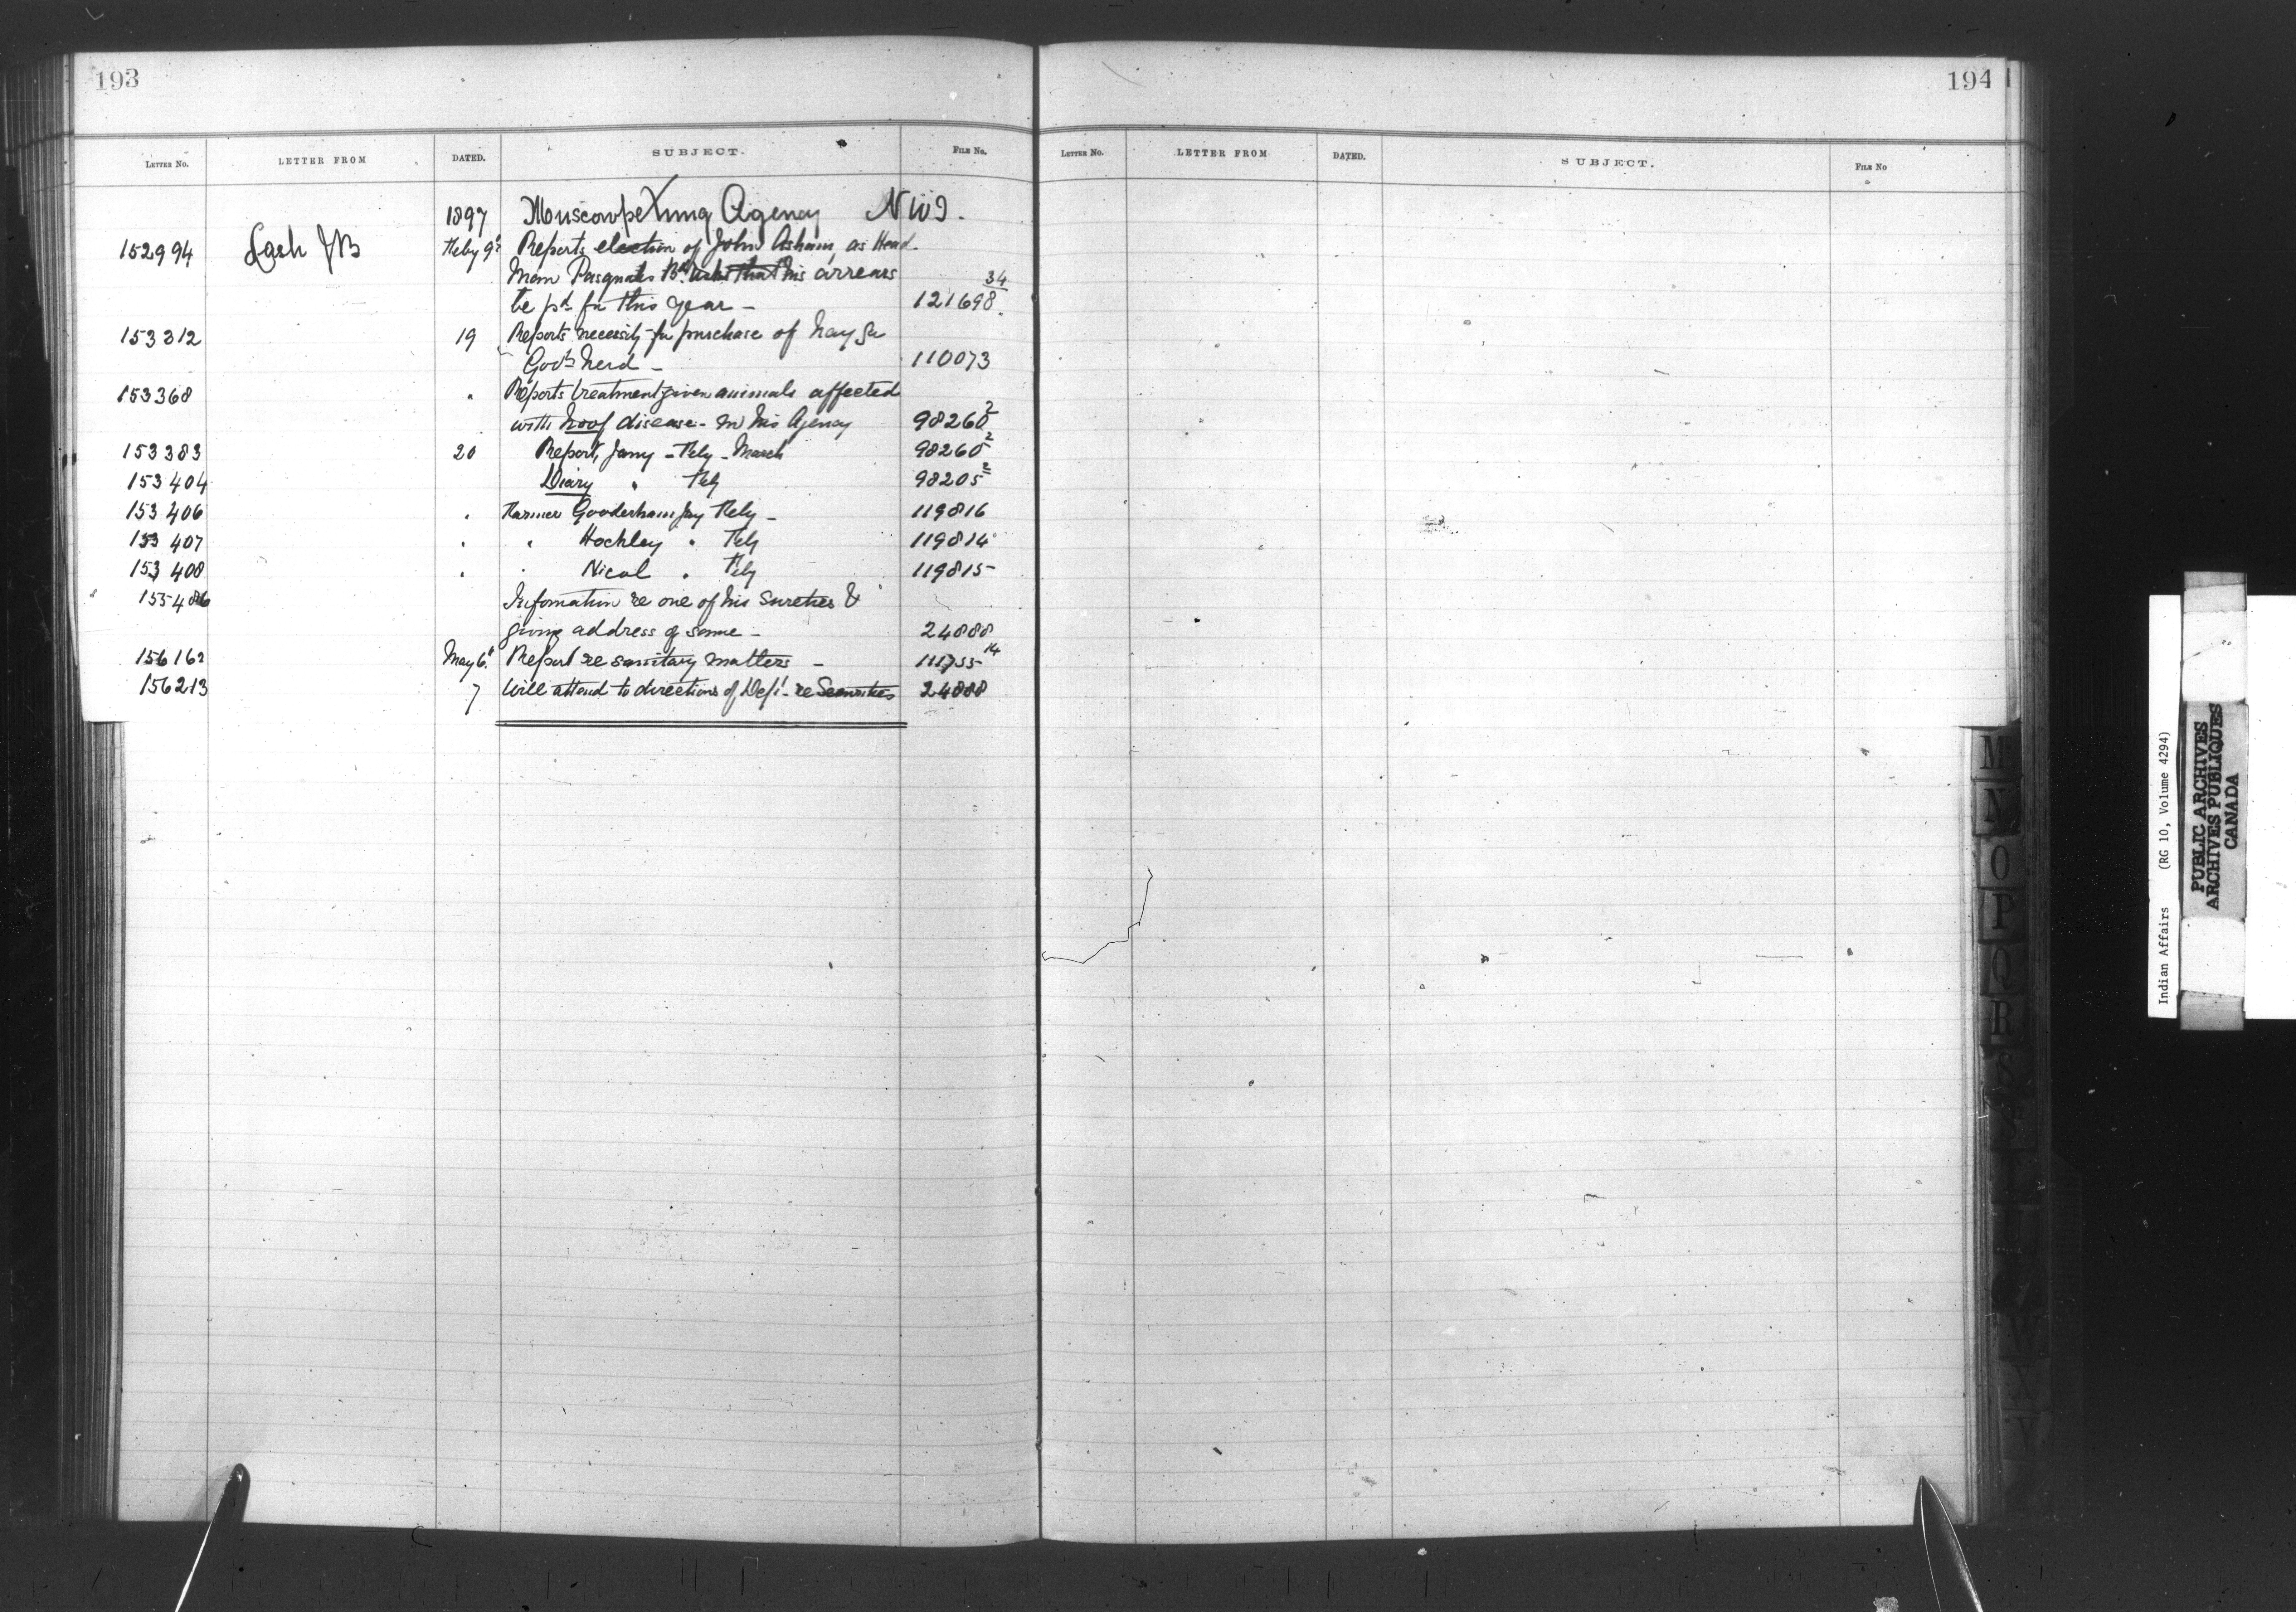 193
LETTER NO. LETTER FROM DATED. SUBJECT. FILE NO.
1897 Muscowpetung Agency NWT.
152994 Lash JB Feby 9th Reports election of John Asham, as Head
Man Pasquahs Bd asks that his arrears 34
be pd for this year — 121698.
153312 19 Reports necessity for purchase of hay for
Govt herd — 110073
153368 " Reports treatment given animals affected
with hoof disease - in his Agency 98260 2
153383 20 Report, Jany - Feby - March 98260 2
153404 Diary " Feby 98205 2
153406 " Farmer Gooderham Jny Feby — 119816
153407 " " Hockley " Feby 119814
153408 " " Nicol " Feby 119815
155486 Information re one of his sureties &
giving address of same — 24888
156162 May 6th Report re sanitary matters — 111755 14
156213 7 Will attend to directions of Dept - re Securities 24888
194
LETTER NO. LETTER FROM DATED. SUBJECT. FILE NO
M
N
O
P
Q
R
S
T
U
W
X
Y
Indian Affairs (RG 10, Volume 4294)
PUBLIC ARCHIVES
ARCHIVES PUBLIQUES
CANADA